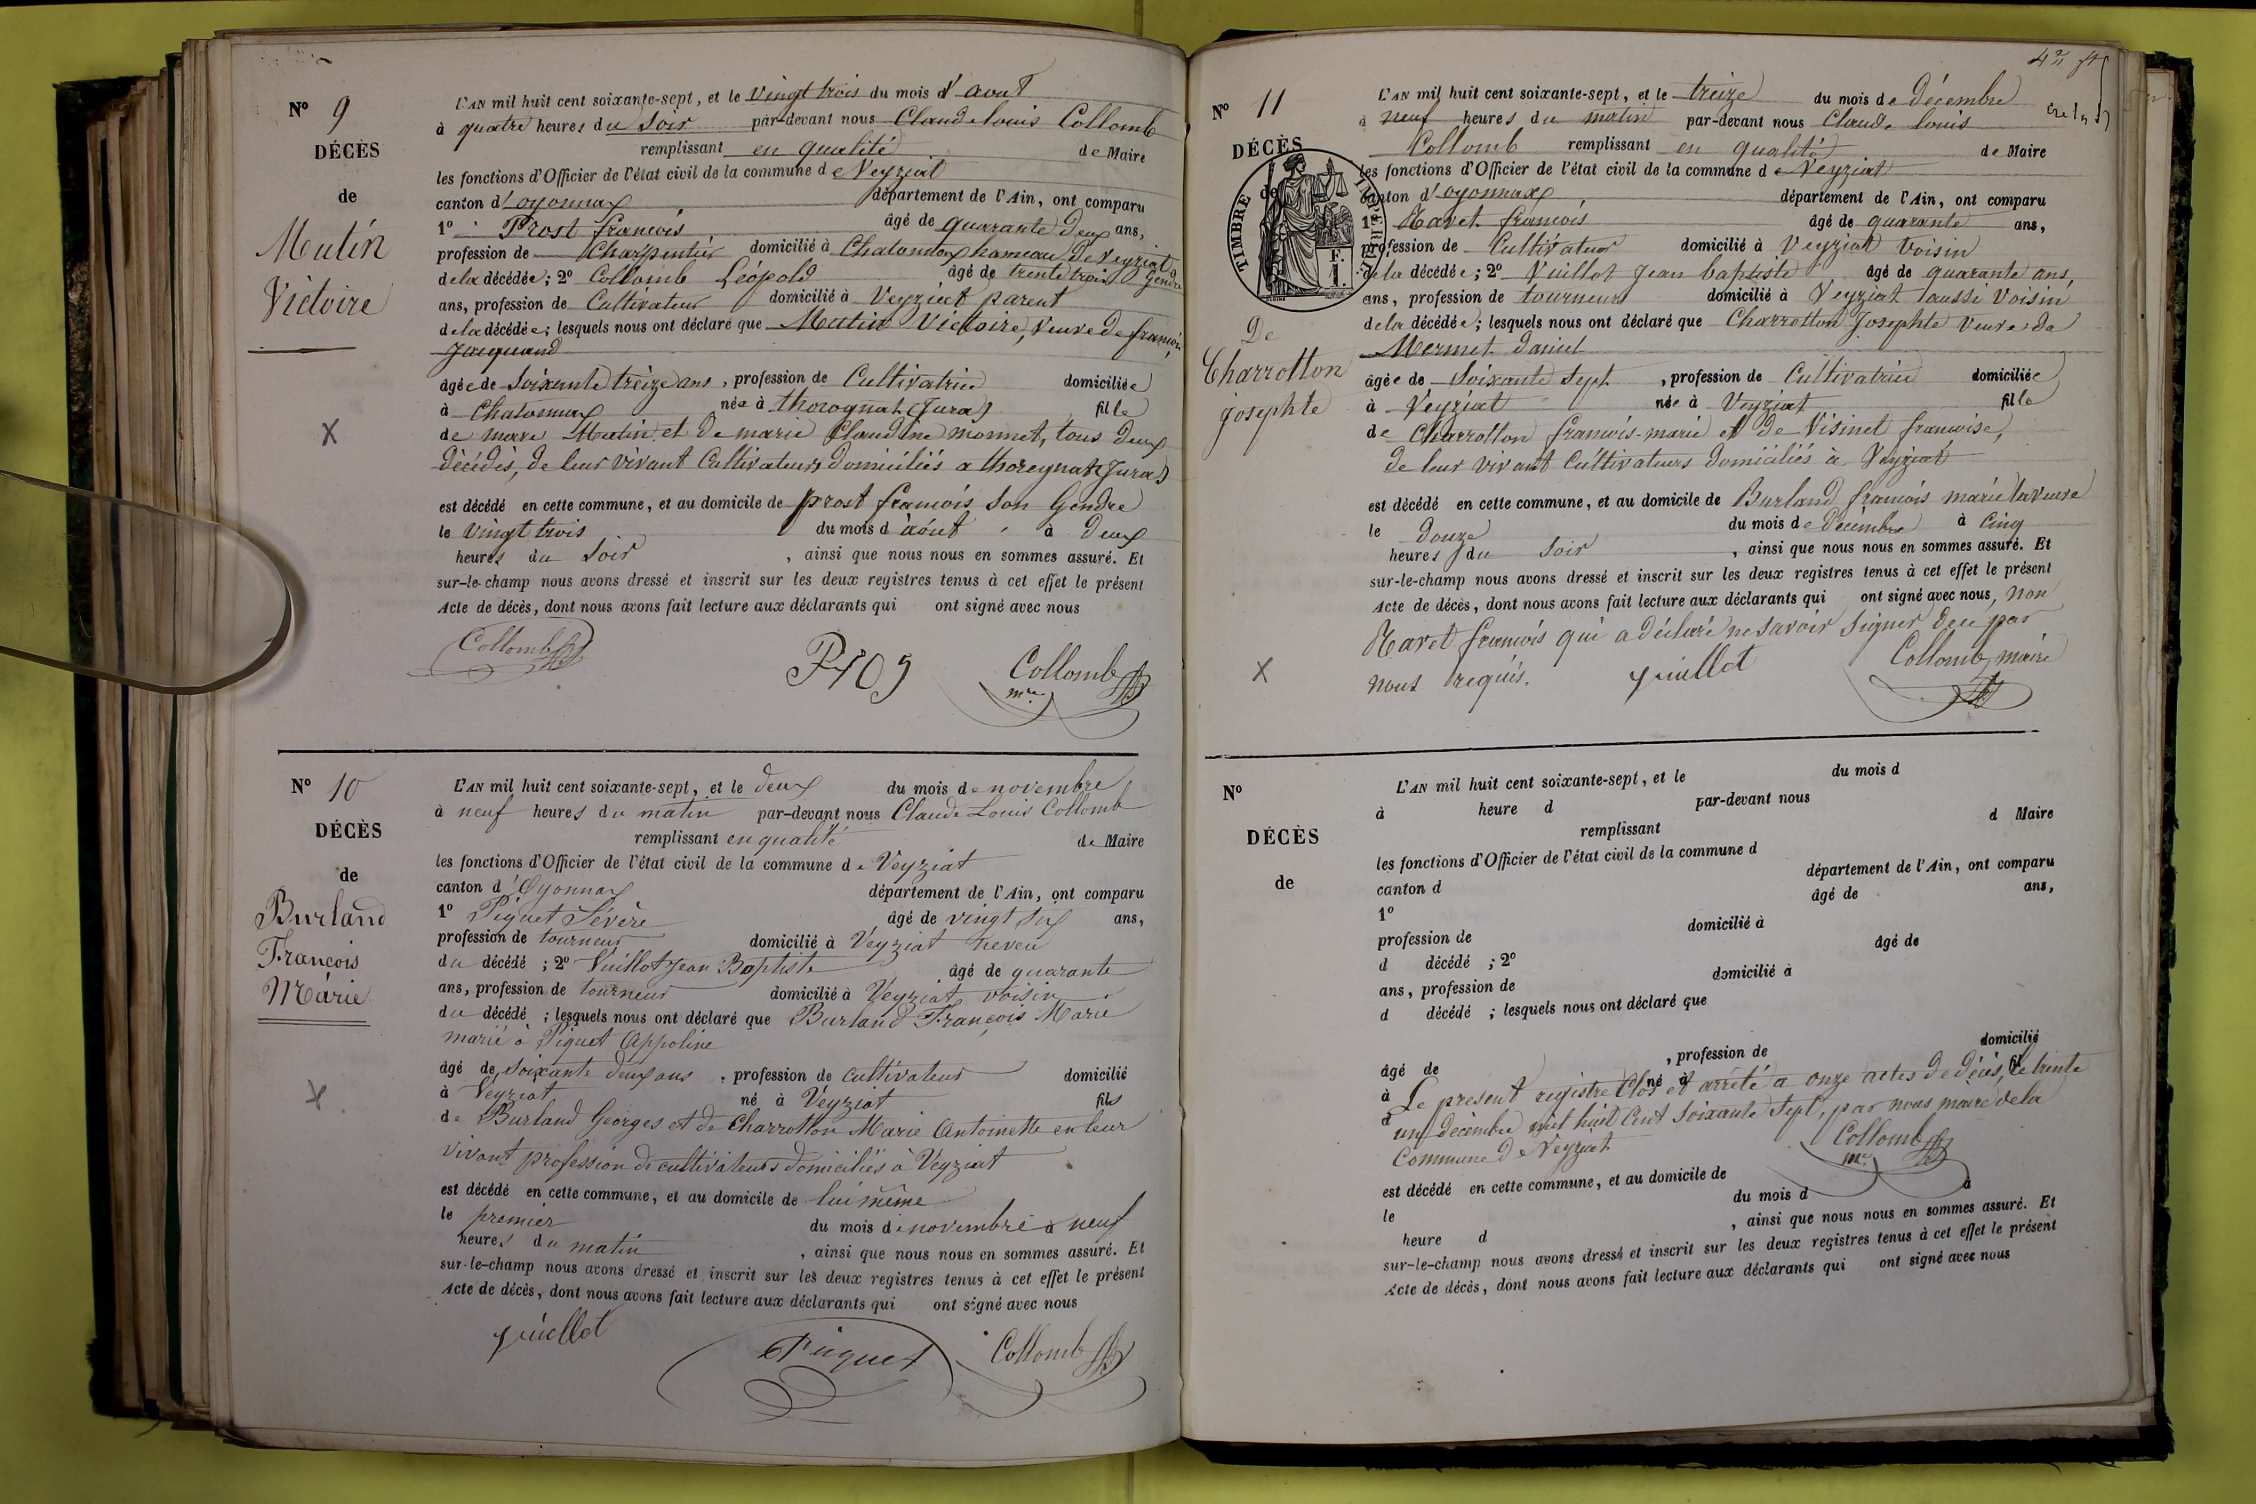 N° 9
DÉCÈS
de
Mutin
Victoire
X
L'AN mil huit cent soixante-sept, et le vingt trois du mois d'aout
à quatre heures du soir par-devant nous Claude louis Collomb
remplissant en qualité de Maire
les fonctions d'Officier de l'état civil de la commune de Veyziat
canton d'oyonnax département de l'Ain, ont comparu
1° Prost francois âgé de quarante deux ans,
profession de Charpentier domicilié à Chatonnax hameau de veyziat
de la décédée; 2° Collomb Léopold âgé de trente trois Gendre
ans, profession de Cultivateur domicilié à Veyziat parent
de la décédée; lesquels nous ont déclaré que Mutin Victoire, Veuve de francois
Jacquand
âgée de Soixante treize ans, profession de Cultivatrice domiciliée
à Chatonnax née à thoiognat (Jura) fille
de marc Mutin et de marie Claudine monnet, tous deux
décédés, de leur vivant Cultivateurs domiciliés a thoregnat (Jura)
est décédé en cette commune, et au domicile de prost francois son Gendre
le vingt trois du mois d'août à deux
heures du Soir, ainsi que nous nous en sommes assuré. Et
sur-le-champ nous avons dressé et inscrit sur les deux registres tenus à cet effet le présent
Acte de décès, dont nous avons fait lecture aux déclarants qui ont signé avec nous
Collomb Collomb
mre
N° 10
DÉCÈS
de
Burland
Francois
Marie
X
L'AN mil huit cent soixante-sept, et le deux du mois de novembre
à neuf heures du matin par-devant nous Claude Louis Collomb
remplissant en qualité de Maire
les fonctions d'Officier de l'état civil de la commune de Veyziat
canton d'Oyonnax département de l'Ain, ont comparu
1° Piquet Sévère âgé de vingt six ans,
profession de tourneur domicilié à Veyziat neveu
du décédé ; 2° Vuillot Jean Baptiste âgé de quarante
ans, profession de tourneur domicilié à Veyziat voisin
du décédé ; lesquels nous ont déclaré que Burland François Marie
marié à Piquet Appoline
âgé de soixante deux ans, profession de cultivateur domicilié
à Veyziat né à Veyziat fils
de Burland Georges et de Charrotton Marie Antoinette en leur
vivant profession de cultivateurs domiciliés à Veyziat
est décédé en cette commune, et au domicile de lui même
le premier du mois de novembre à neuf
heures du matin, ainsi que nous nous en sommes assuré. Et
sur-le-champ nous avons dressé et inscrit sur les deux registres tenus à cet effet le présent
Acte de décès, dont nous avons fait lecture aux déclarants qui ont signé avec nous
vuillot Piquet Collomb
N° 11
DÉCÈS
de
TIMBRE IMPERIAL
F.
1.
De
Charrotton
josephte
X
L'AN mil huit cent soixante-sept, et le treize du mois de décembre
à neuf heures du matin par-devant nous Claude louis
Collomb remplissant en qualité de Maire
les fonctions d'Officier de l'état civil de la commune de Veyziat
canton d'oyonnax département de l'Ain, ont comparu
1° Navet francois âgé de quarante ans,
profession de Cultivateur domicilié à Veyziat voisin
de la décédée; 2° Vuillot jean baptiste âgé de quarante ans,
ans, profession de tourneur domicilié à Veyziat aussi voisin
de la décédée; lesquels nous ont déclaré que Charrotton Josephte veuve de
Mermet daniel
âgée de Soixante sept, profession de Cultivatrice domiciliée
à Veyziat née à Veyziat fille
de Charrotton francois-marie et de Visinet francoise,
de leur vivant cultivateurs domiciliés à Veyziat
est décédé en cette commune, et au domicile de Burland francois marie la veuve
le douze du mois de décembre à cinq
heures du soir, ainsi que nous nous en sommes assuré. Et
sur-le-champ nous avons dressé et inscrit sur les deux registres tenus à cet effet le présent
Acte de décès, dont nous avons fait lecture aux déclarants qui ont signé avec nous, non
Navet francois qui a déclaré ne savoir signer de ce par
nous requis. vuillot Collomb maire
N°
DÉCÈS
de
L'AN mil huit cent soixante-sept, et le du mois d
à heure d par-devant nous
remplissant d Maire
les fonctions d'Officier de l'état civil de la commune d
canton d département de l'Ain, ont comparu
1° âgé de ans,
profession de domicilié à
d décédé ; 2° âgé de
ans, profession de domicilié à
d décédé ; lesquels nous ont déclaré que
âgé de , profession de domicilié
à né à fil
d
Le present registre Clos et arrêté a onze actes de décès, le trente
un décembre mil huit Cent soixante sept, par nous maire de la
Commune de Veyziat Collomb
mre
est décédé en cette commune, et au domicile de
le du mois d à
heure d , ainsi que nous nous en sommes assuré. Et
sur-le-champ nous avons dressé et inscrit sur les deux registres tenus à cet effet le présent
Acte de décès, dont nous avons fait lecture aux déclarants qui ont signé avec nous